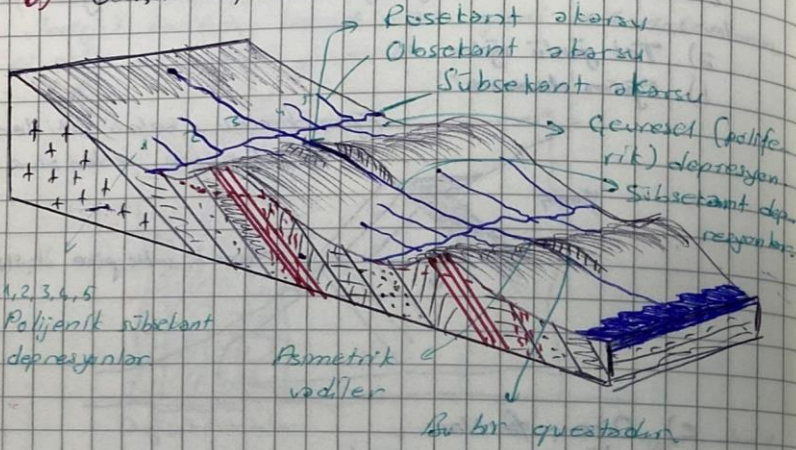 Resekant akarsu
Obsekant akarsu
Sübsekant akarsu
Çevresel (polife
rik) depresyon
Sübsekant dep
resyonlar
1, 2, 3, 4, 5
Polijenik sübsekant
depresyonlar
Asimetrik
vadiler
Bu bir questadır